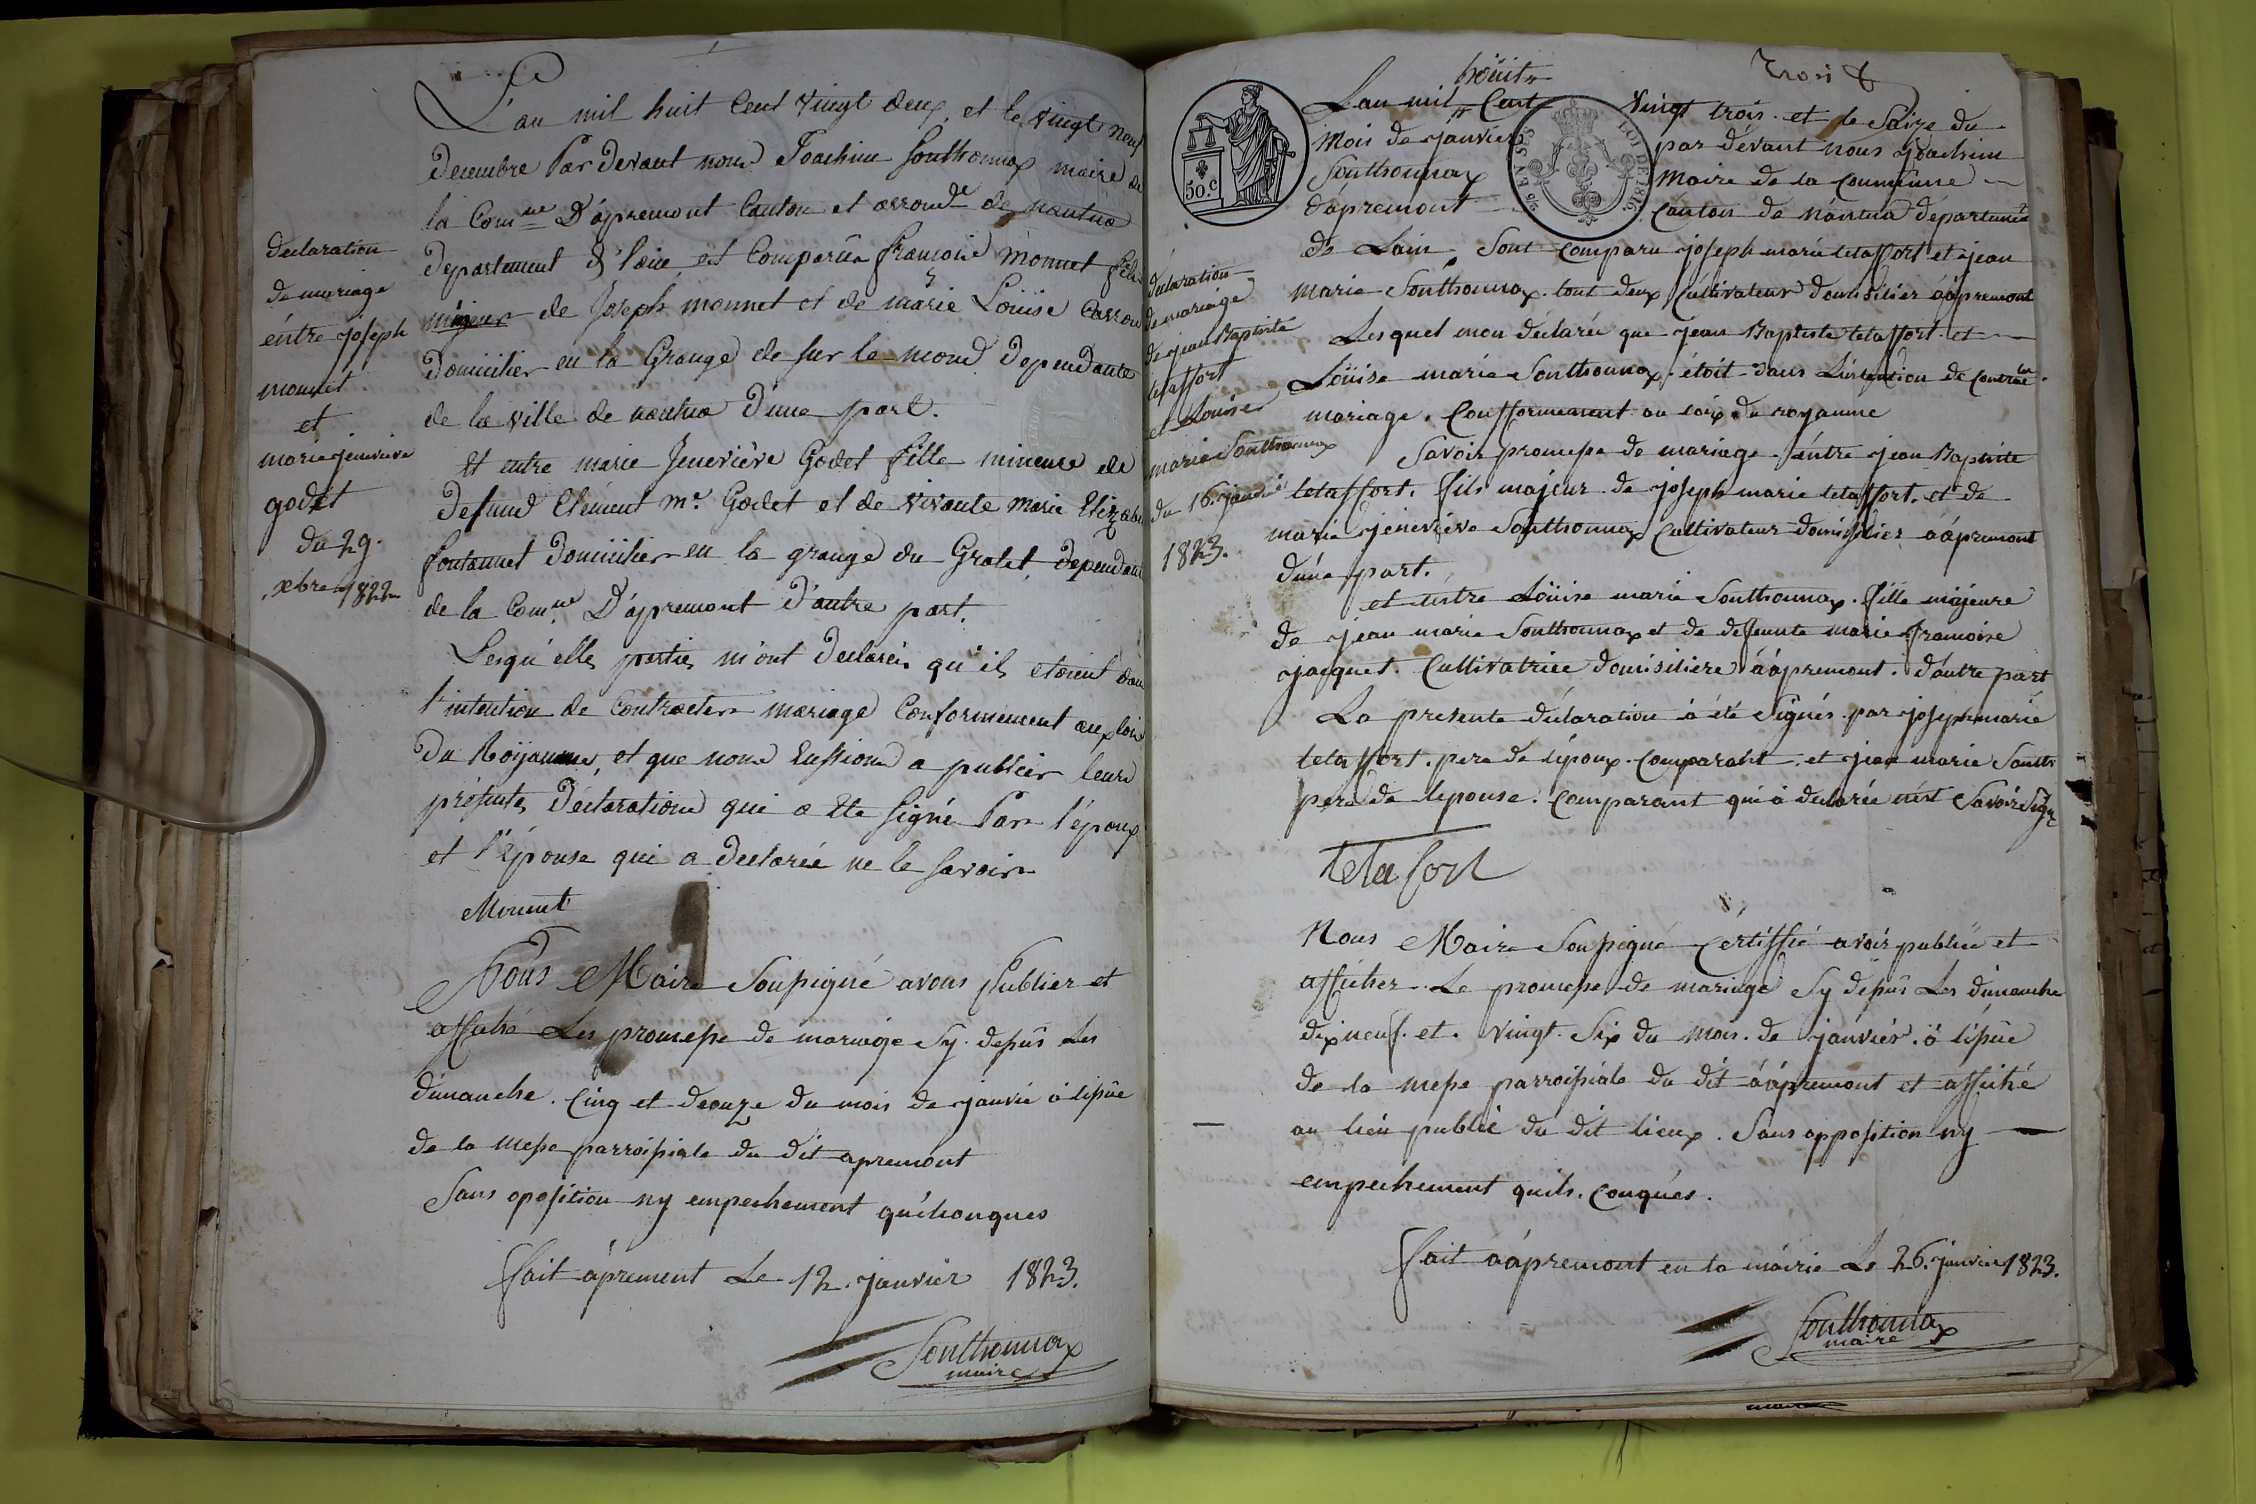 L'an mil huit Cent vingt deux, et le vingt neuf
Decembre Par Devant nous Joachim Sonthonnax maire de
la Com.ne D'apremont Canton et arrond.t de nantua
Departement de l'ain est Comparûe françois Monnet fils
mineur de Joseph monnet et de marie Loüise Carron
Domicilier en la Grange de sur le mond Dependante
de la ville de nantua D'une part.
Et entre marie Jeneviève Godet fille mineure de
Defund Clément m.e Godet et de vivante Marie Elizabe
fontannet Domicilier en la grange du Grolet, dependant
de la Com.ne D'apremont D'autre part.
Lesqu'elles parties m'ont Declarés qu'ils etoient dan
l'intention de Contracter mariage Conformement aux loix
Du Roÿaume, et que nous Eussions a publier leurs
présentes Déclarations qui a Ete signé Par l'époux
et l'Epouse qui a Declarée ne le savoir
Monnet
Nous Maire Soussigné avons Publier et
affiché Les promesse de mariage Sy. depûs Les
dimanche. Cinq et deouze du mois de janvié à lissüe
de la messe parroissiale du dit apremont
Sans oposition ny empechement quélconques
fait àprement Le 12. janvier 1823.
Sonthonnax
maire
declaration
de mariage
éntre joseph
monnet
et
marie jenevieve
godet
du 29.
xbre 1822
trois
L'an mil hüit Cent vingt trois. et le Saize du
Mois de janvier par dévant nous joachim
Sonthonnax Maire de la Commune
dápremont Canton de Nantua departement
de Lain. Sont Comparu joseph marie tetaffort et jean
Marie Sonthonnax. tout deux Cultivateur domisilier áápremont
Lesquel mon déclarée que jean Baptiste tetaffort et
Loüise marie Sonthonnax. étoit dans L'intention de Contracter
mariage. Confformement au loix du royaume
Savoir promesse de mariage. éntre jean Baptiste
tetaffort. fils majeur de joseph marie tetaffort. et de
marie jéneviève Sonthonnax Cultivateur domisilier áápremont
dune part.
et éntre Loüise marie Sonthonnax. fille majeure
de jean marie Sonthonnax et de deffunte marie framoise
jacquet. Cultivatrice domisiliere áápremont. d'autre part
La presente déclaration à été Signés par joseph marie
tetaffort. pere de lépoux. Comparant. et jean marie Sonth
pere de lepouse. Comparant qui à declarée nést Savoir Signe
tetafort
Nous Maire Soussigné Certiffié avoir publié et
afficher. Le promesse de mariage Sy dépûs Les dimanche
dixneuf. et. vingt Six du mois. de janvier. à lissüe
de la messe parroissiale du dit áápremont et affiché
au lieu public du dit lieux. Sans opposition ny
empechement quils. Conqués.
fait áápremont en la mairie Le 26. janvier 1823.
Sonthonnax
maire
déclaration
de mariage
de jean Baptiste
tetaffort
et Louise
marie Sonthonnax
du 16. janvié
1823.
50.c
LOI DE 1816.